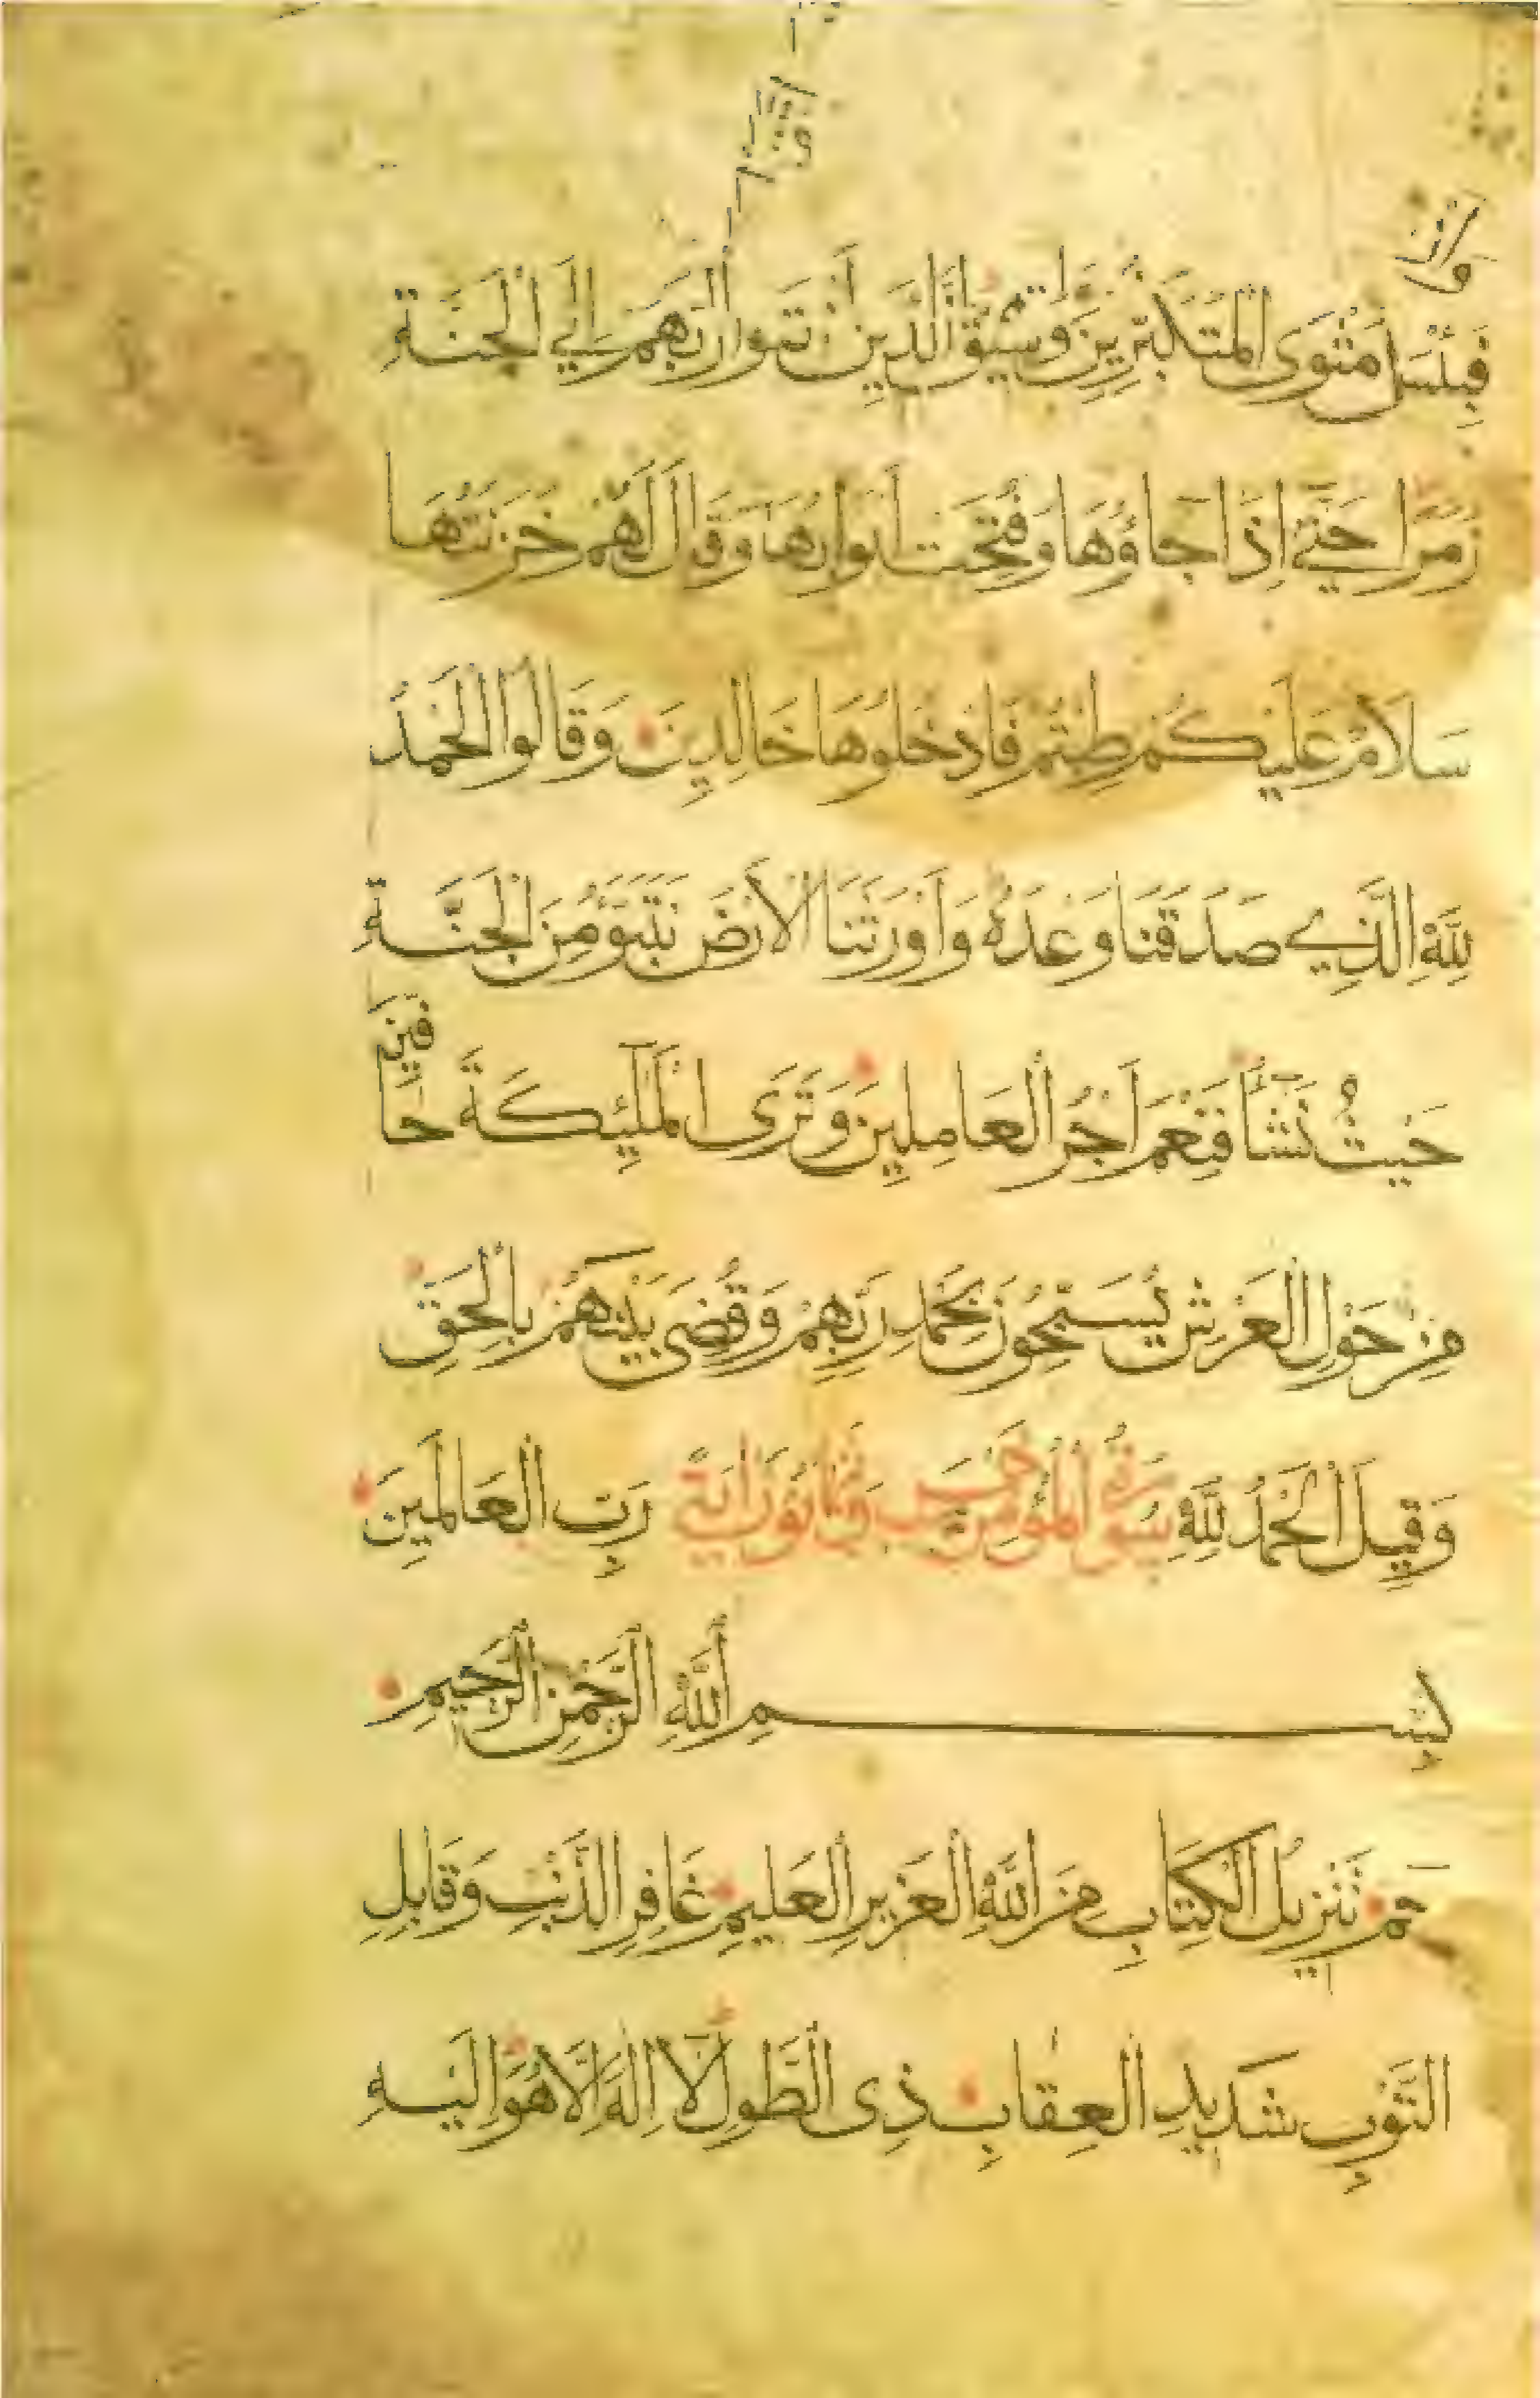 فَبِئْسَ مَثْوَى الْمُتَكَبِّرِينَ وَسِيقَ الَّذِينَ اتَّقَوْا رَبَّهُمْ إِلَى الْجَنَّةِ
زُمَرًا حَتَّىٰ إِذَا جَاؤُهَا وَفُتِحَتْ أَبْوَابُهَا وَقَالَ لَهُمْ خَزَنَتُهَا
سَلَامٌ عَلَيْكُمْ طِبْتُمْ فَادْخُلُوهَا خَالِدِينَ وَقَالُوا الْحَمْدُ
لِلَّهِ الَّذِي صَدَقَنَا وَعْدَهُ وَأَوْرَثَنَا الْأَرْضَ نَتَبَوَّءُ مِنَ الْجَنَّةِ
حَيْثُ نَشَاءُ فَنِعْمَ أَجْرُ الْعَامِلِينَ وَتَرَى الْمَلَٰئِكَةَ حَافِّينَ
مِنْ حَوْلِ الْعَرْشِ يُسَبِّحُونَ بِحَمْدِ رَبِّهِمْ وَقُضِيَ بَيْنَهُمْ بِالْحَقِّ
وَقِيلَ الْحَمْدُ لِلَّهِ سُورَةُ الْمُؤْمِنِ خَمْسٌ وَثَمَانُونَ آيَةً رَبِّ الْعَالَمِينَ
بِسْمِ اللَّهِ الرَّحْمَٰنِ الرَّحِيمِ
حم تَنْزِيلُ الْكِتَابِ مِنَ اللَّهِ الْعَزِيزِ الْعَلِيمِ غَافِرِ الذَّنْبِ وَقَابِلِ
التَّوْبِ شَدِيدِ الْعِقَابِ ذِي الطَّوْلِ لَا إِلَٰهَ إِلَّا هُوَ إِلَيْهِ